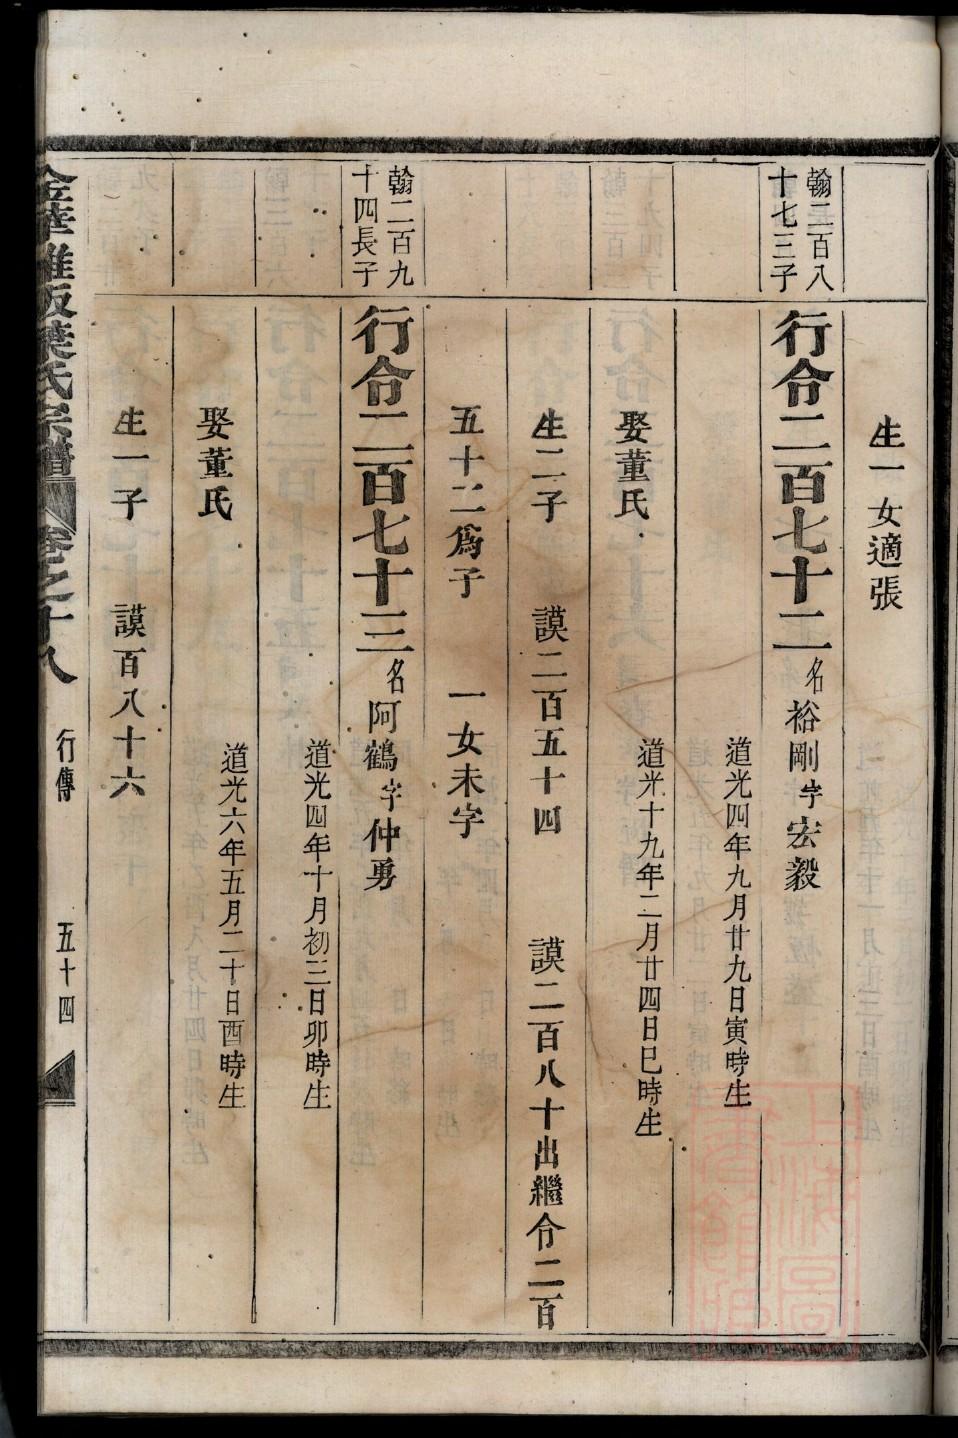 生一女適張
翰二百八
十七三子
行令二百七十二名裕剛字宏毅
道光四年九月廿九日寅時生
娶董氏
道光十九年二月廿四日巳時生
生二子 謨二百五十四 謨二百八十出繼令二百
五十二為子 一女未字
翰二百九
十四長子
行令二百七十三名阿鶴字仲勇
道光四年十月初三日卯時生
娶董氏
道光六年五月二十日酉時生
生一子 謨百八十六
金華雅坂葉氏宗譜 卷之十八 行傳 五十四
上海圖書館藏